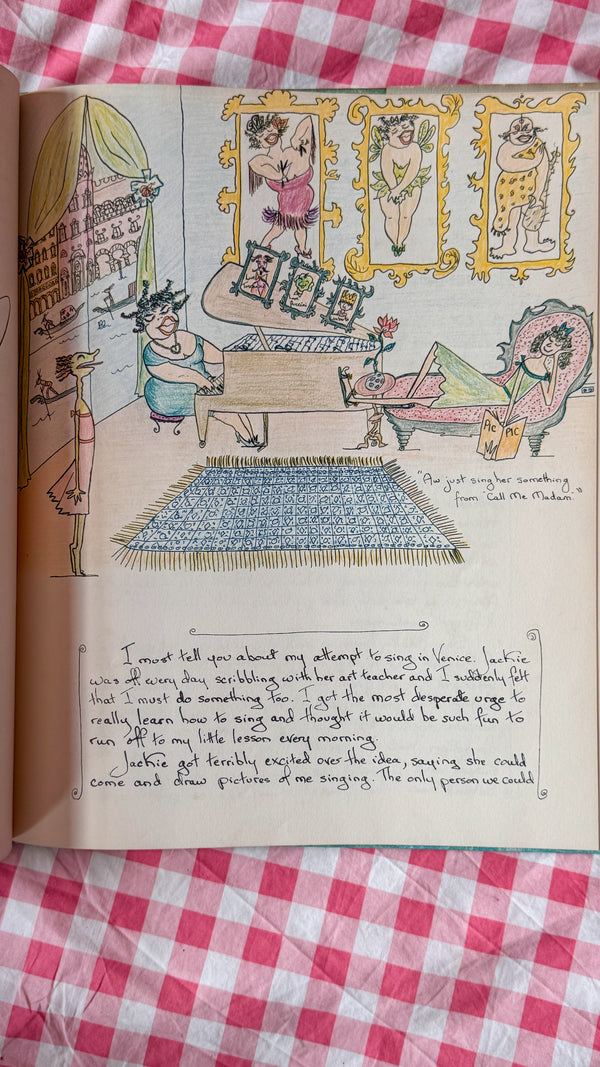 PIC
PIC
"Aw just sing her something
from 'Call Me Madam'."
I must tell you about my attempt to sing in Venice. Jackie
was off every day scribbling with her art teacher and I suddenly felt
that I must do something too. I got the most desperate urge to
really learn how to sing and thought it would be such fun to
run off to my little lesson every morning.
Jackie got terribly excited over the idea, saying she could
come and draw pictures of me singing. The only person we could